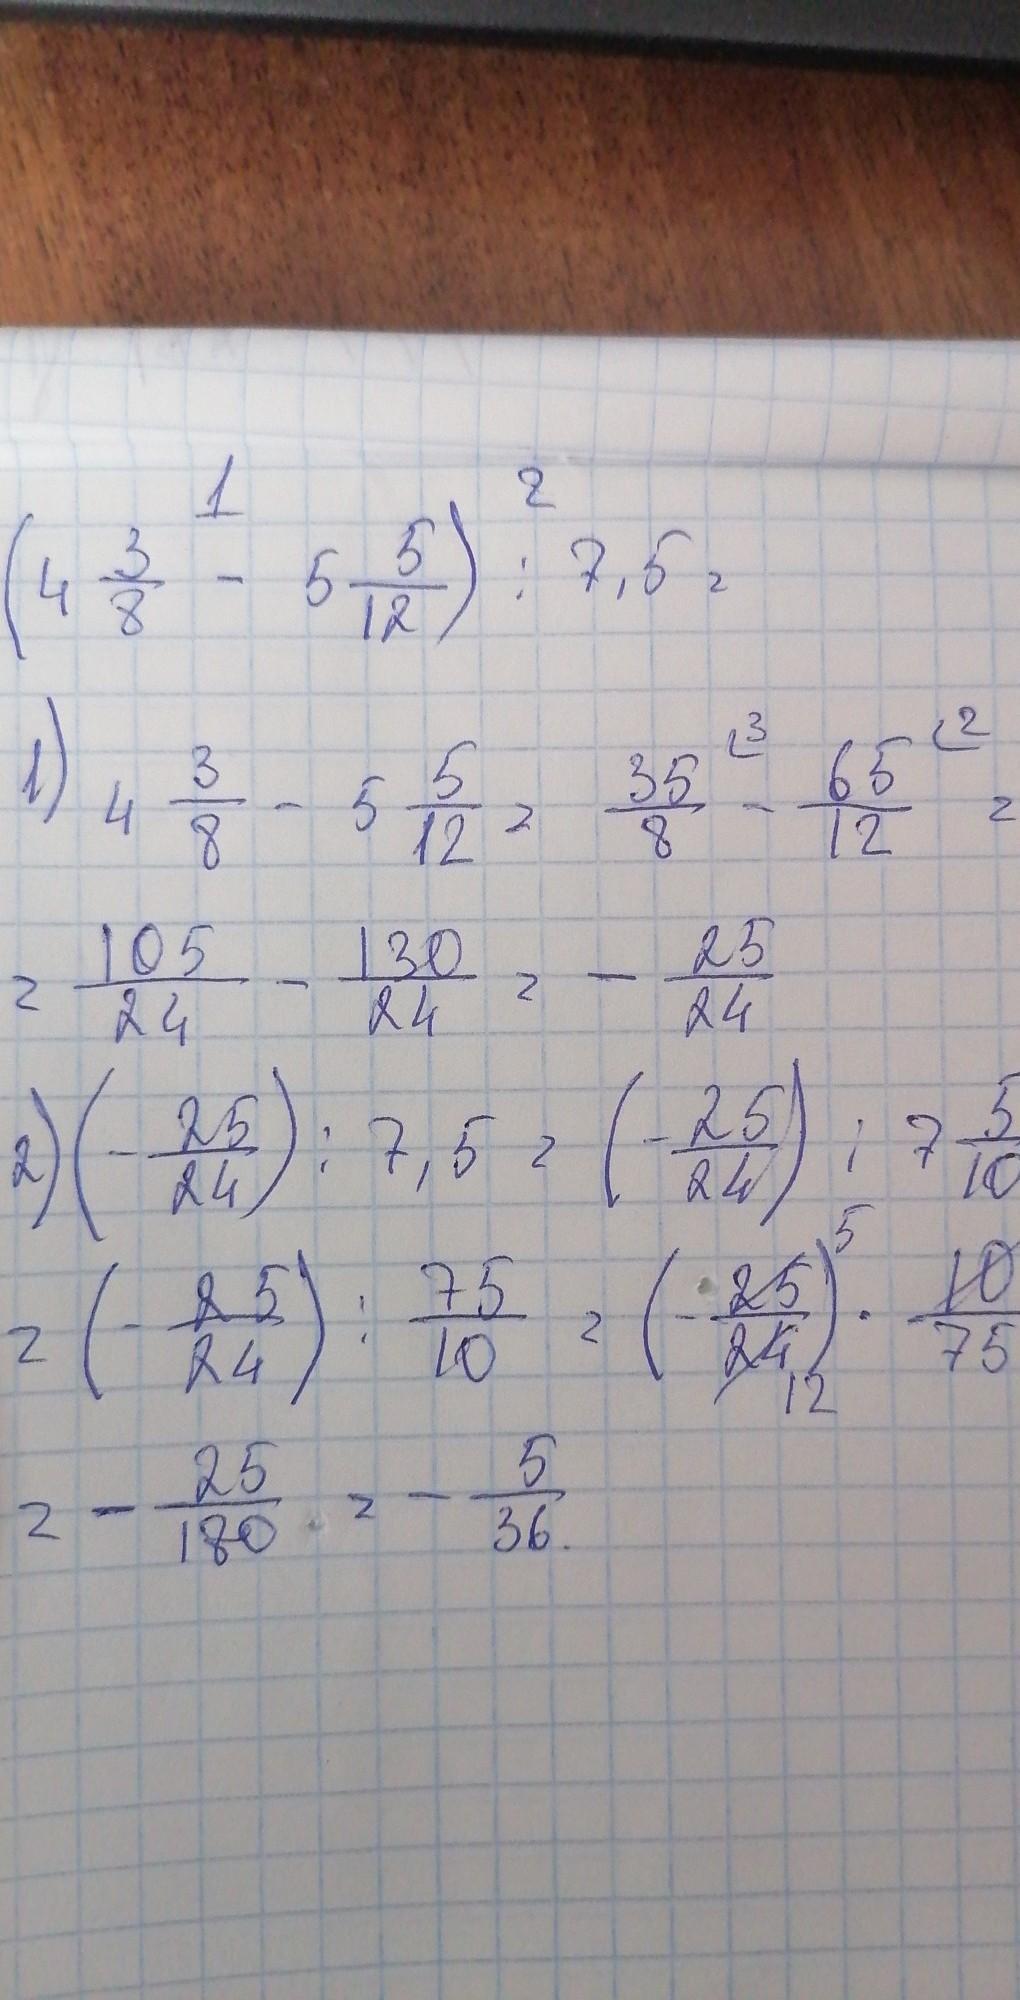 1 2
(4 3/8 - 5 5/12) : 7,5 =
1) 4 3/8 - 5 5/12 = 35/8 ⌞3 - 65/12 ⌞2 =
= 105/24 - 130/24 = - 25/24
2) (- 25/24) : 7,5 = (- 25/24) : 7 5/10
= (- 25/24) : 75/10 = (- 25/24) 5 12 · 10/75
= - 25/180 = - 5/36.